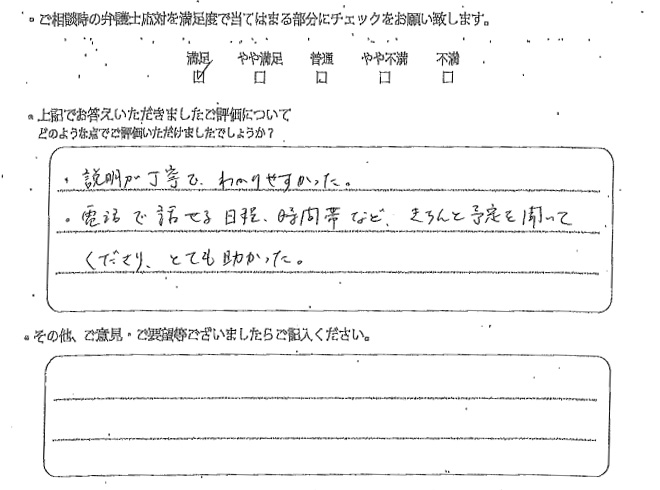 ・ご相談時の弁護士応対を満足度で当てはまる部分にチェックをお願い致します。
満足 やや満足 普通 やや不満 不満
☑ □ □ □ □
・上記でお答えいただきましたご評価について
どのような点でご評価いただけましたでしょうか？
・説明が丁寧で、わかりやすかった。
・電話で話せる日程、時間帯など、きちんと予定を聞いて
くださり、とても助かった。
・その他、ご意見・ご要望等ございましたらご記入ください。